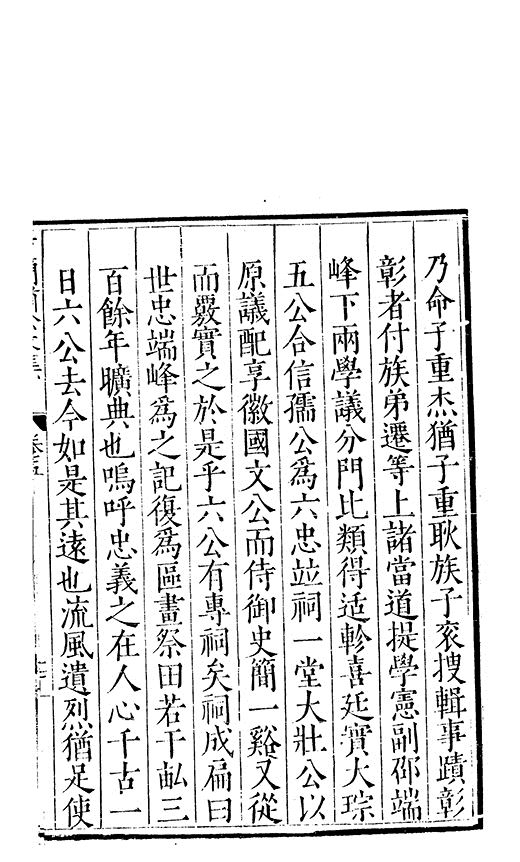 乃命子重杰猶子重耿族子衮搜輯事蹟彰
彰者付族弟遷等上諸當道提學憲副邵端
峰下兩學議分門比類得适軫喜廷實大琮
五公合信孺公為六忠並祠一堂大壯公以
原議配享徽國文公而侍御史簡一谿又從
而覈實之於是乎六公有專祠矣祠成扁曰
世忠端峰為之記復為區畫祭田若干畝三
百餘年曠典也嗚呼忠義之在人心千古一
日六公去今如是其遠也流風遺烈猶足使